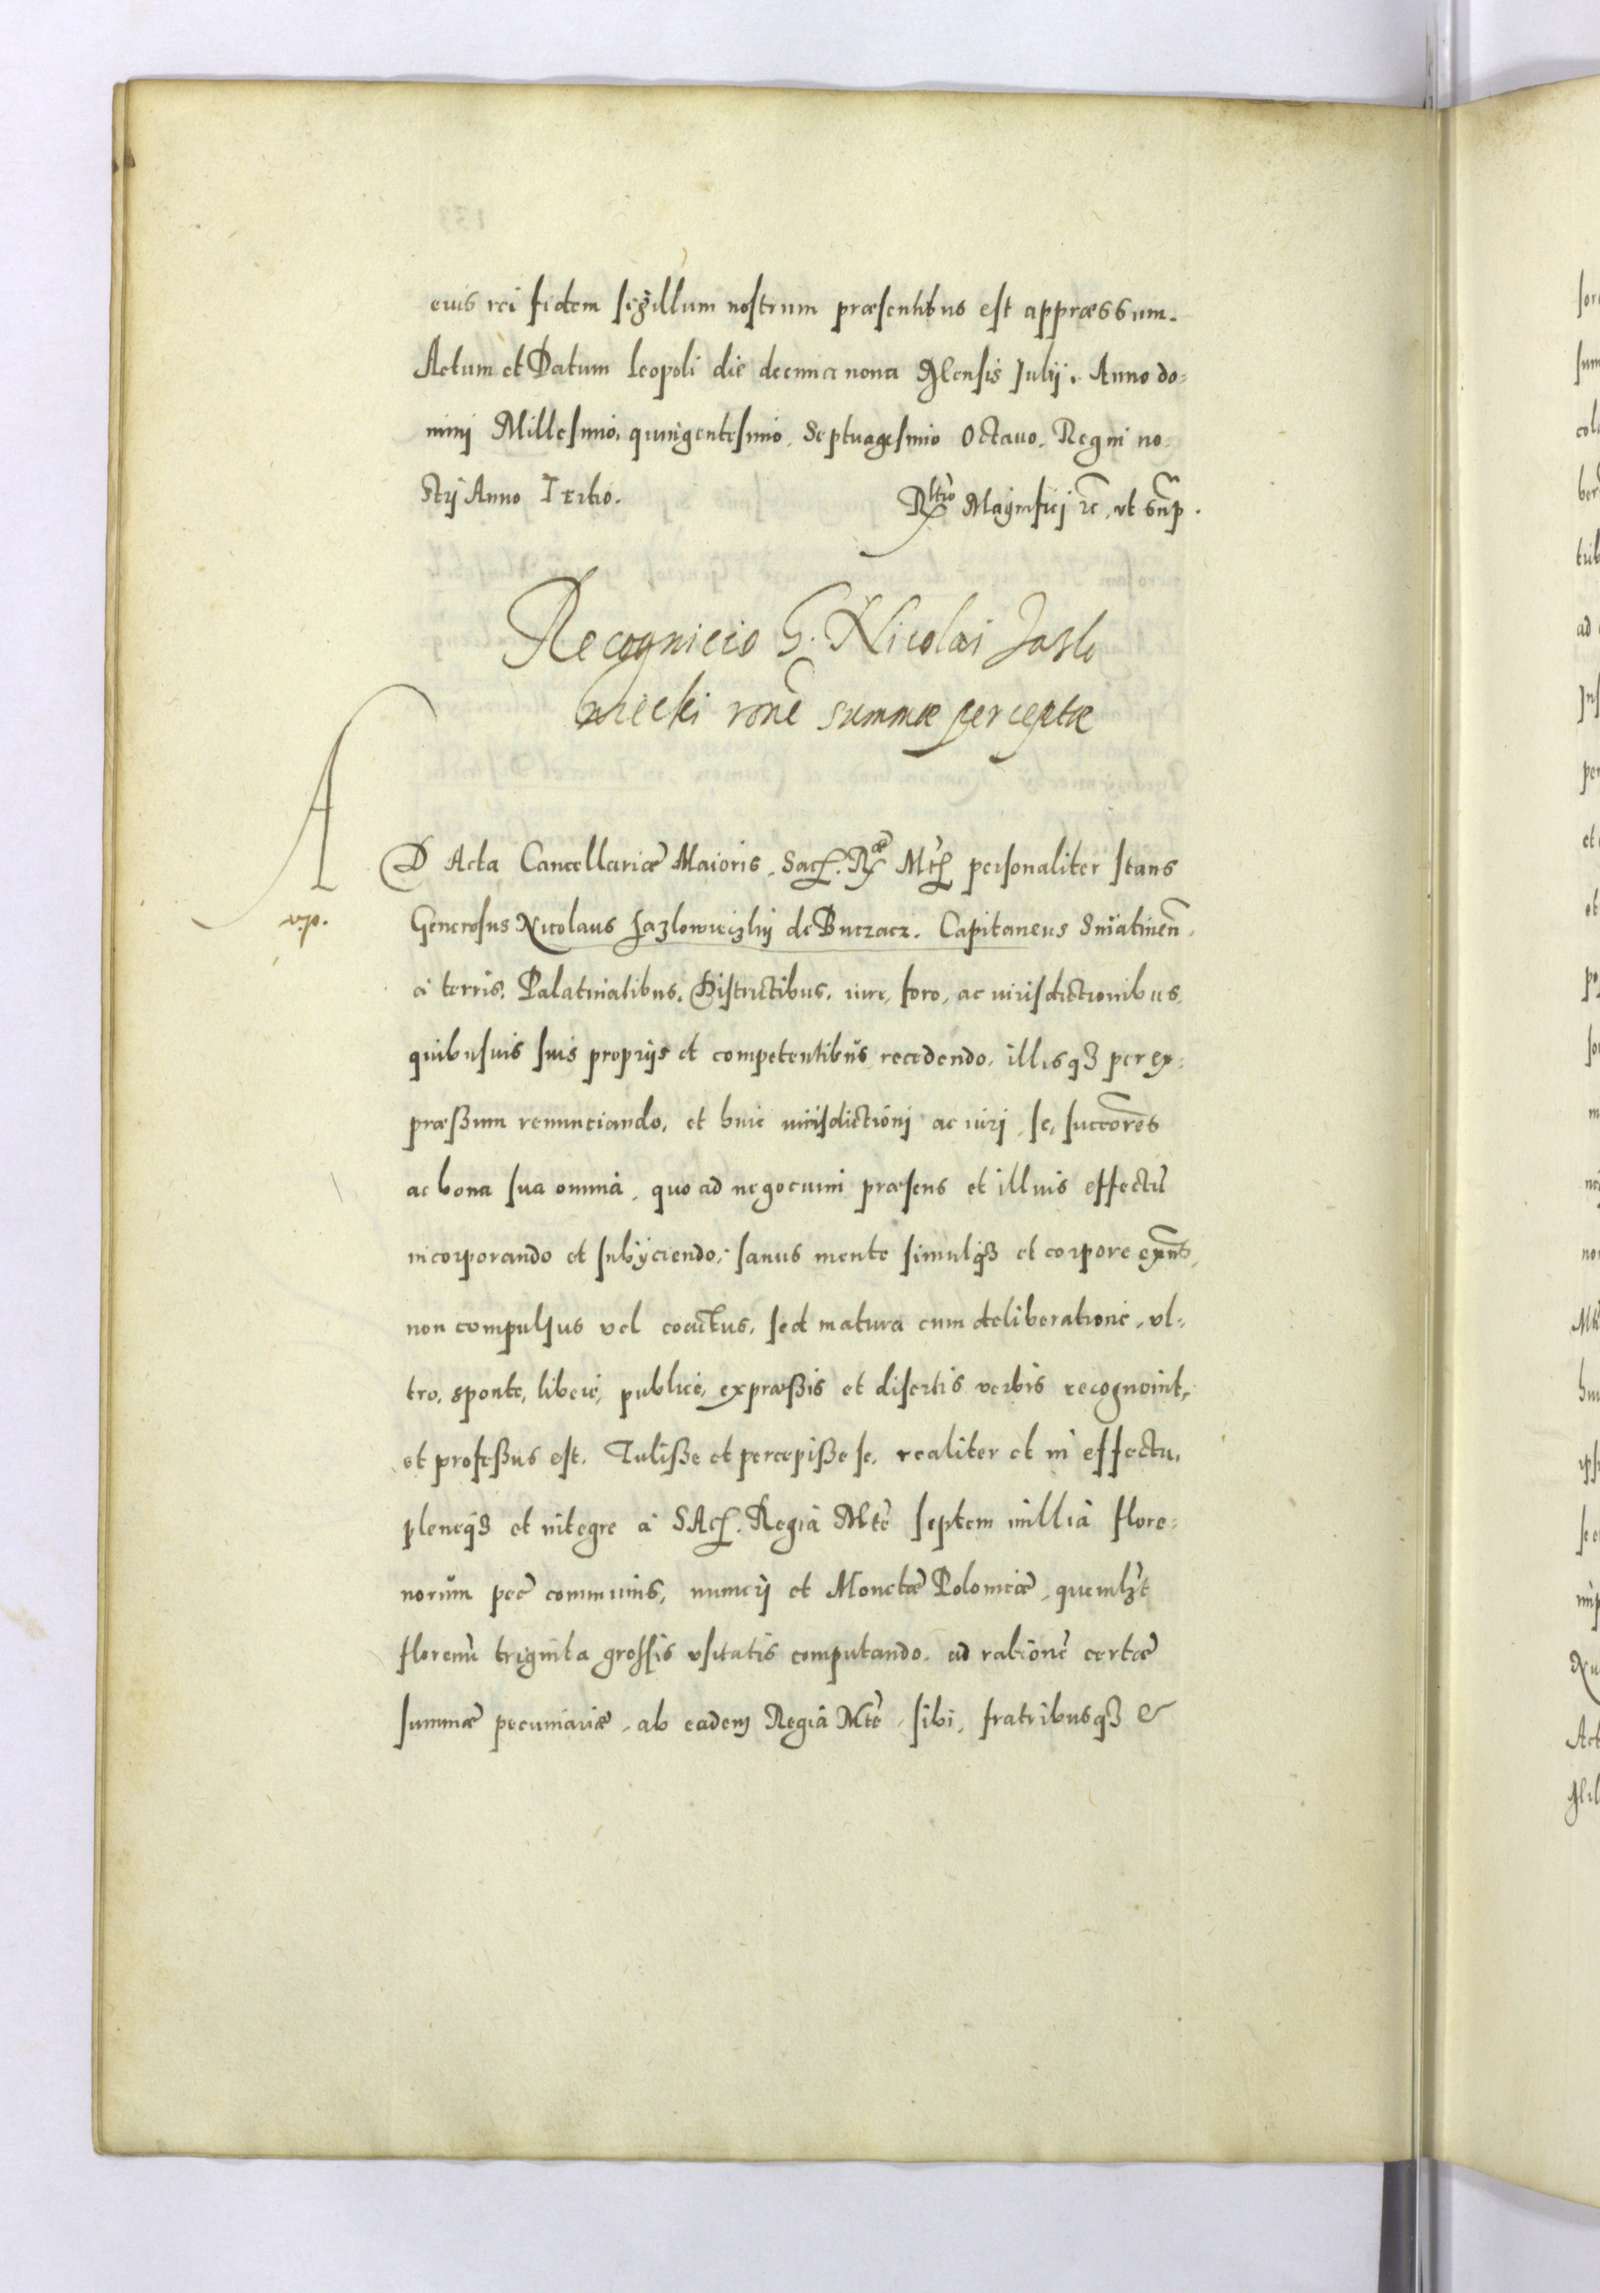 cuius rei fidem sigillum nostrum præsentibus est appræssum.
Actum et Datum Leopoli die decima nona Mensis Julij. Anno do=
mini Millesimo, quingentesimo, Septuagesimo Octauo. Regni no=
strj Anno Tertio.
Rltio Magnificj rc, vt sup.
Recognicio G. Nicolai Jazlo
wiecki ronē summæ perceptæ
AD Acta Cancellariæ Maioris. Sacr. Ræ Mtis personaliter stans
v.p.
Generosus Nicolaus Jazlowieczkij de Buczacz. Capitaneus Sniatinen.
à terris, Palatinatibus, Districtibus, iure, foro, ac iurisdictionibus,
quibusuis suis proprijs et competentibus recedendo, illisq3 per ex=
præßum renunciando, et huic iurisdictionj ac iurj, se, succores
ac bona sua omnia, quo ad negocium præsens et illius effectū
incorporando et subijciendo, sanus mente simulq3 et corpore exns,
non compulsus vel coactus, sed matura cum deliberatione, vl=
tro, sponte, liberè, publicè, expræßis et disertis verbis recognouit,
et profeßus est. Tuliße et percepiße se, realiter et in effectu,
pleneq3 et integre à SAcr. Regia Mte septem millia flore=
norum pec communis, numerj et Monetæ Polonicæ, quemlzt
florenū triginta grossis vsitatis computando, ad rationē certæ
summæ pecuniariæ, ab eadem Regia Mte, sibi, fratribusq3 &